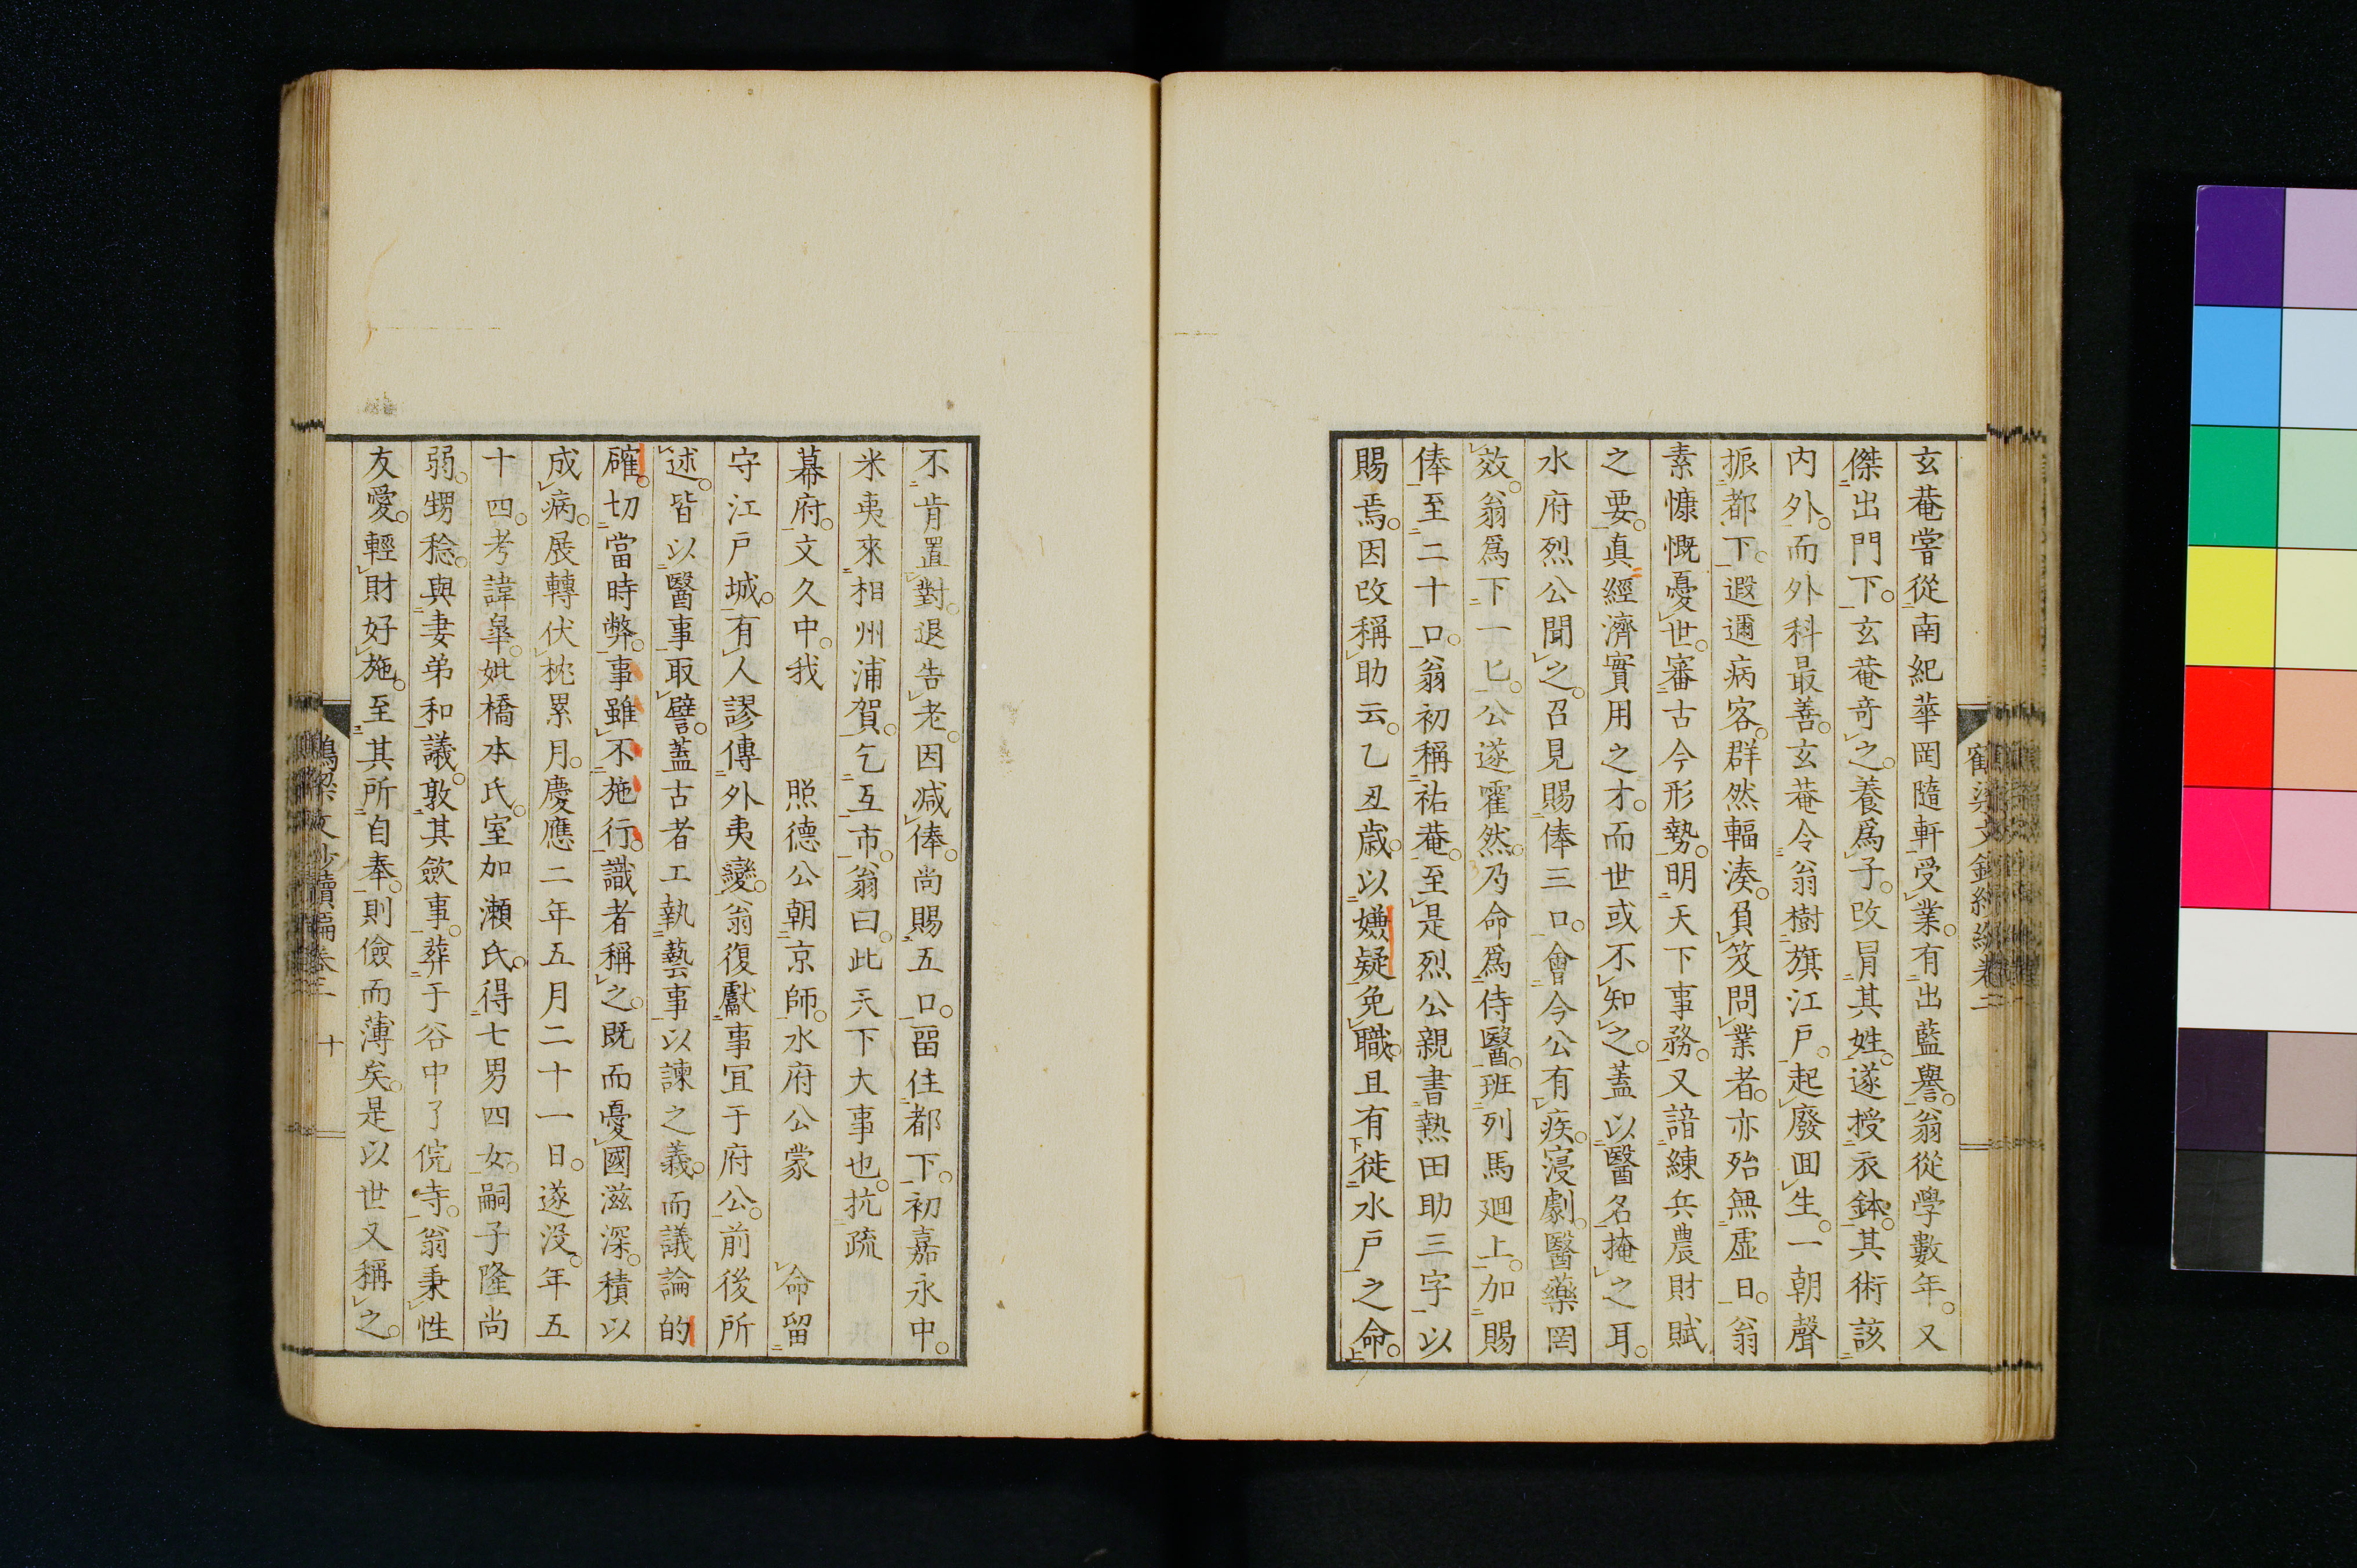 玄菴嘗從南紀華岡隨軒受業。有出藍譽。翁從學數年。又
傑出門下。玄菴奇之。養爲子。改冐其姓。遂授衣鉢。其術該
内外。而外科最善。玄菴令翁樹旗江戸。起廢回生。一朝聲
振都下。遐邇病客。群然輻湊。負笈問業者。亦殆無虛日。翁
素慷慨憂世。審古今形勢。明天下事務。又諳練兵農財賦
之要。真經濟實用之才。而世或不知之。蓋以醫名掩之耳。
水府烈公聞之。召見賜俸三口。會今公有疾。寖劇。醫藥罔
效。翁爲下一匕。公遂霍然。乃命爲侍醫。班列馬廻上。加賜
俸至二十口。翁初稱祐菴。至是烈公親書熱田助三字。以
賜焉。因改稱助云。乙丑歳。以嫌疑免職。且有徙水戸之命。
不肯置對。退告老。因减俸。尚賜五口。留住都下。初嘉永中。
米夷來相州浦賀。乞互市。翁曰。此天下大事也。抗疏
幕府。文久中。我　照德公朝京師。水府公蒙　命留
守江戸城。有人謬傳外夷變。翁復獻事宜于府公。前後所
述。皆以醫事取譬。蓋古者工執藝事以諫之義。而議論的
確。切當時弊。事雖不施行。識者稱之。既而憂國滋深。積以
成病。展轉伏枕累月。慶應二年五月二十一日。遂没。年五
十四。考諱皐。妣橋本氏。室加瀬氏。得七男四女。嗣子隆尚
弱。甥稔。與妻弟和議。敦其斂事。葬于谷中了俒寺。翁秉性
友愛。輕財好施。至其所自奉。則儉而薄矣。是以世又稱之。
鶴梁文鈔續編卷二
十